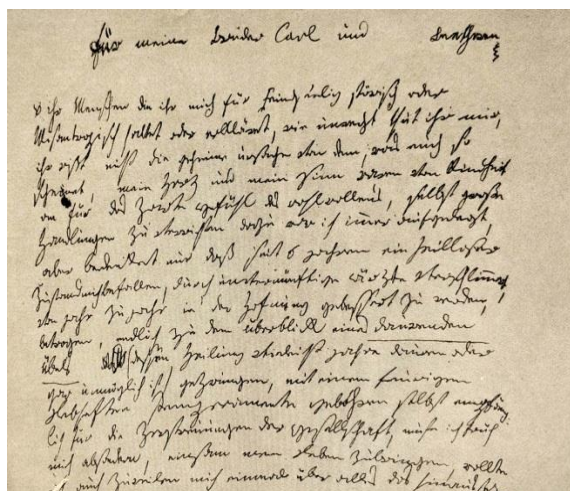 für meine Brüder Carl und Beethoven
o ihr Menschen die ihr mich für Feindseelig störisch oder
Misantropisch haltet oder erkläret, wie unrecht thut ihr mir,
ihr wißt nicht die geheime urßache von dem, was euch so
scheinet, mein Herz und mein Sinn waren von Kindheit
an für das Zarte gefühl des wohlwollens, selbst große
Handlungen zu verrichten dazu war ich immer aufgelegt,
aber bedenket nur daß seit 6 jahren ein heilloser
Zustand mich befallen, durch unvernünftige ärzte verschlimmert
von jahr zu jahr in der Hofnung gebessert zu werden,
betrogen, endlich zu dem überblick eines daurenden
Übels dessen Heilung vieleicht jahre dauren oder
gar unmöglich ist gezwungen, mit einem feurigen
Lebhaften Temperamente gebohren selbst empfäng
lich für die Zerstreuungen der Gesellschaft, muste ich früh
mich absondern, einsam mein Leben zubringen, wollte
ich auch zuweilen mich einmal über alles das hinaussezen